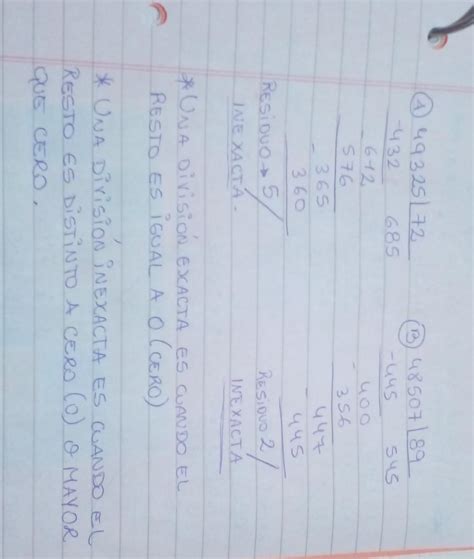 A 49325 | 72
-432 685
-612
576
-365
360
RESIDUO → 5 /
INEXACTA.
B 48507 | 89
-445 545
-400
356
-447
445
RESIDUO 2 /
INEXACTA
* UNA DIVISIÓN EXACTA ES CUANDO EL
RESTO ES IGUAL A 0 (CERO)
* UNA DIVISIÓN INEXACTA ES CUANDO EL
RESTO ES DISTINTO A CERO (0) O MAYOR
QUE CERO.